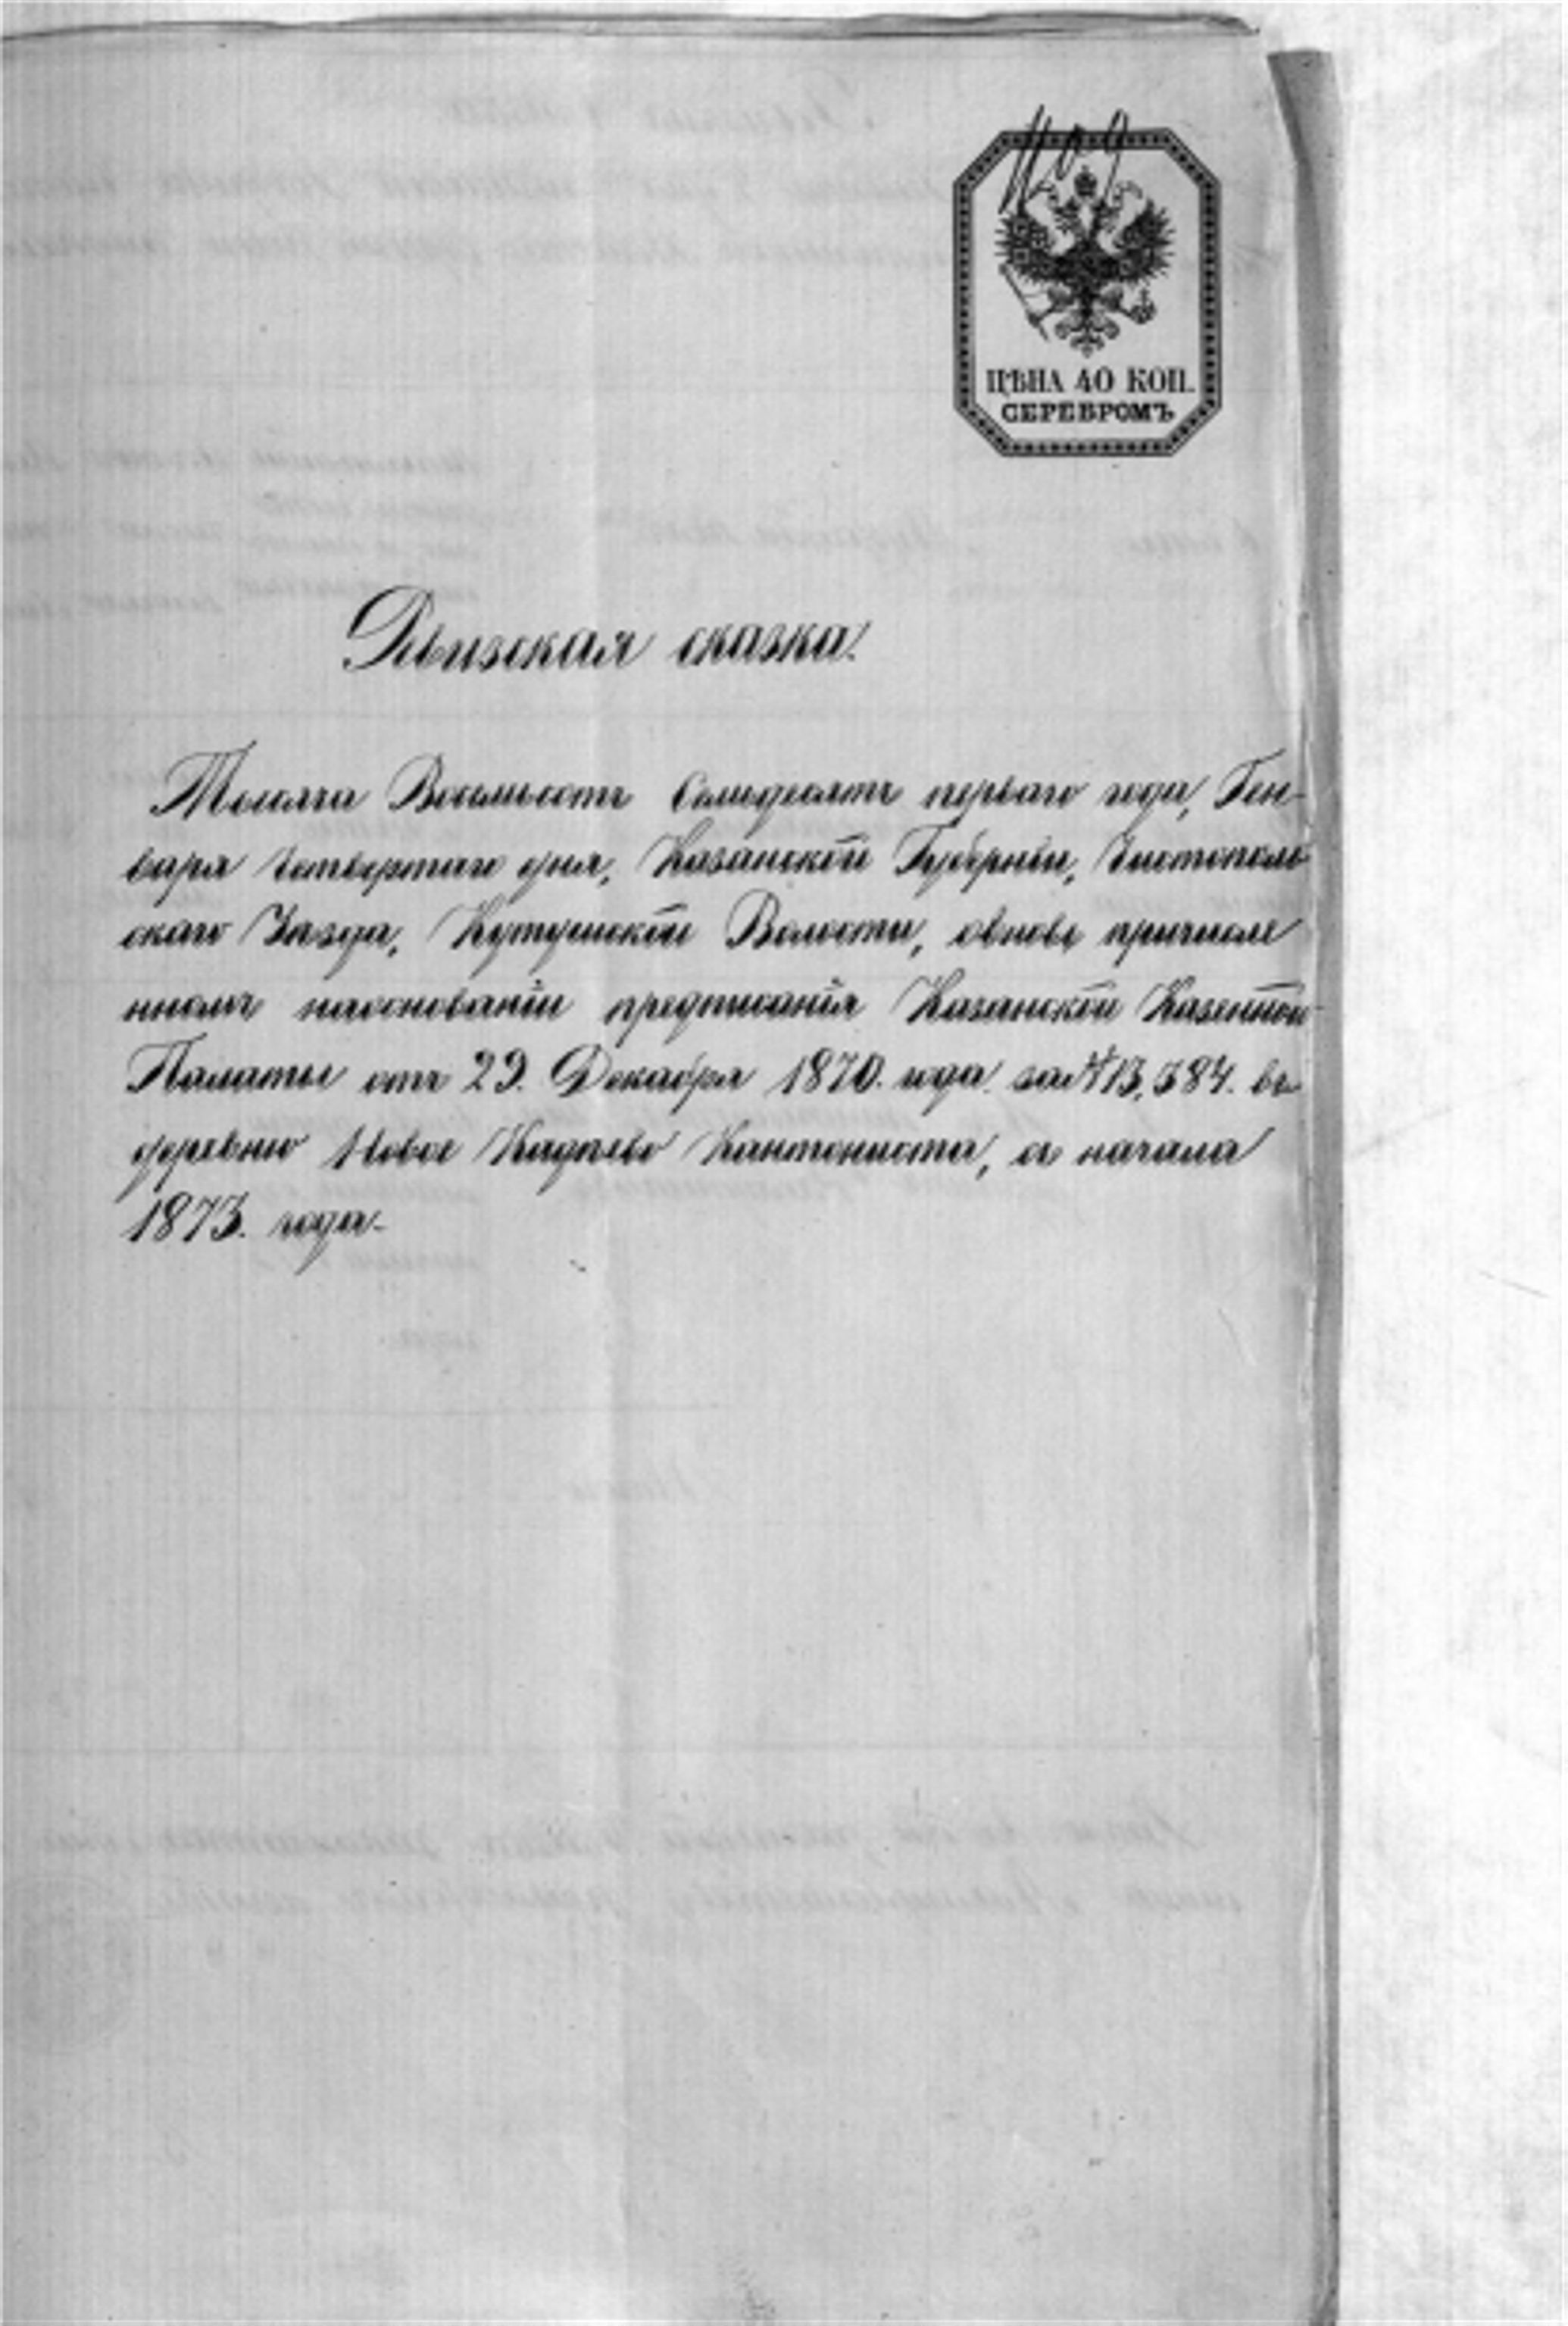 1109
ЦѢНА 40 КОП.
СЕРЕБРОМЪ
Ревизская сказка.
Тысяча Восемьсотъ Семьдесятъ перваго года, Ген-
варя Четвертаго дня, Казанской Губерніи, Чистополь
скаго Уѣзда, Кутушской Волости, овновь причисле
нномъ наоснованіи предписанія Казанской Казенной
Палаты отъ 29. Декабря 1870. года за № 13,584. въ
деревню Новое Кадѣево Кантониста, съ начала
1873. года